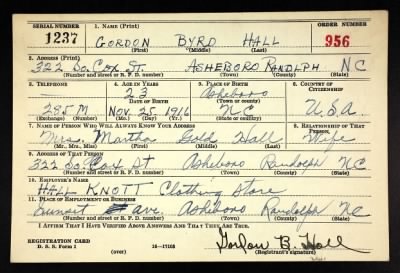 SERIAL NUMBER 1. NAME (Print) ORDER NUMBER
1237 GORDON BYRD HALL 956
(First) (Middle) (Last)
2. ADDRESS (Print)
322 So. Cox St. ASHEBORO RANDLPH NC
(Number and street or R. F. D. number) (Town) (County) (State)
3. TELEPHONE 4. AGE IN YEARS 5. PLACE OF BIRTH 6. COUNTRY OF CITIZENSHIP
23 Asheboro
DATE OF BIRTH (Town or county)
285M Nov. 25, 1916 NC U.S.A.
(Exchange) (Number) (Mo.) (Day) (Yr.) (State or country)
7. NAME OF PERSON WHO WILL ALWAYS KNOW YOUR ADDRESS 8. RELATIONSHIP OF THAT PERSON
Mrs. Martha Gold Hall Wife
(Mr., Mrs., Miss) (First) (Middle) (Last)
9. ADDRESS OF THAT PERSON
322 So Cox St Asheboro Randolph N.C.
(Number and street or R. F. D. number) (Town) (County) (State)
10. EMPLOYER'S NAME
HALL KNOTT Clothing Store
11. PLACE OF EMPLOYMENT OR BUSINESS
Sunset ave. Asheboro Randolph NC
(Number and street or R. F. D. number) (Town) (County) (State)
I AFFIRM THAT I HAVE VERIFIED ABOVE ANSWERS AND THAT THEY ARE TRUE.
REGISTRATION CARD
D. S. S. Form 1 (over) 16—17105 Gordon B. Hall
(Registrant's signature)